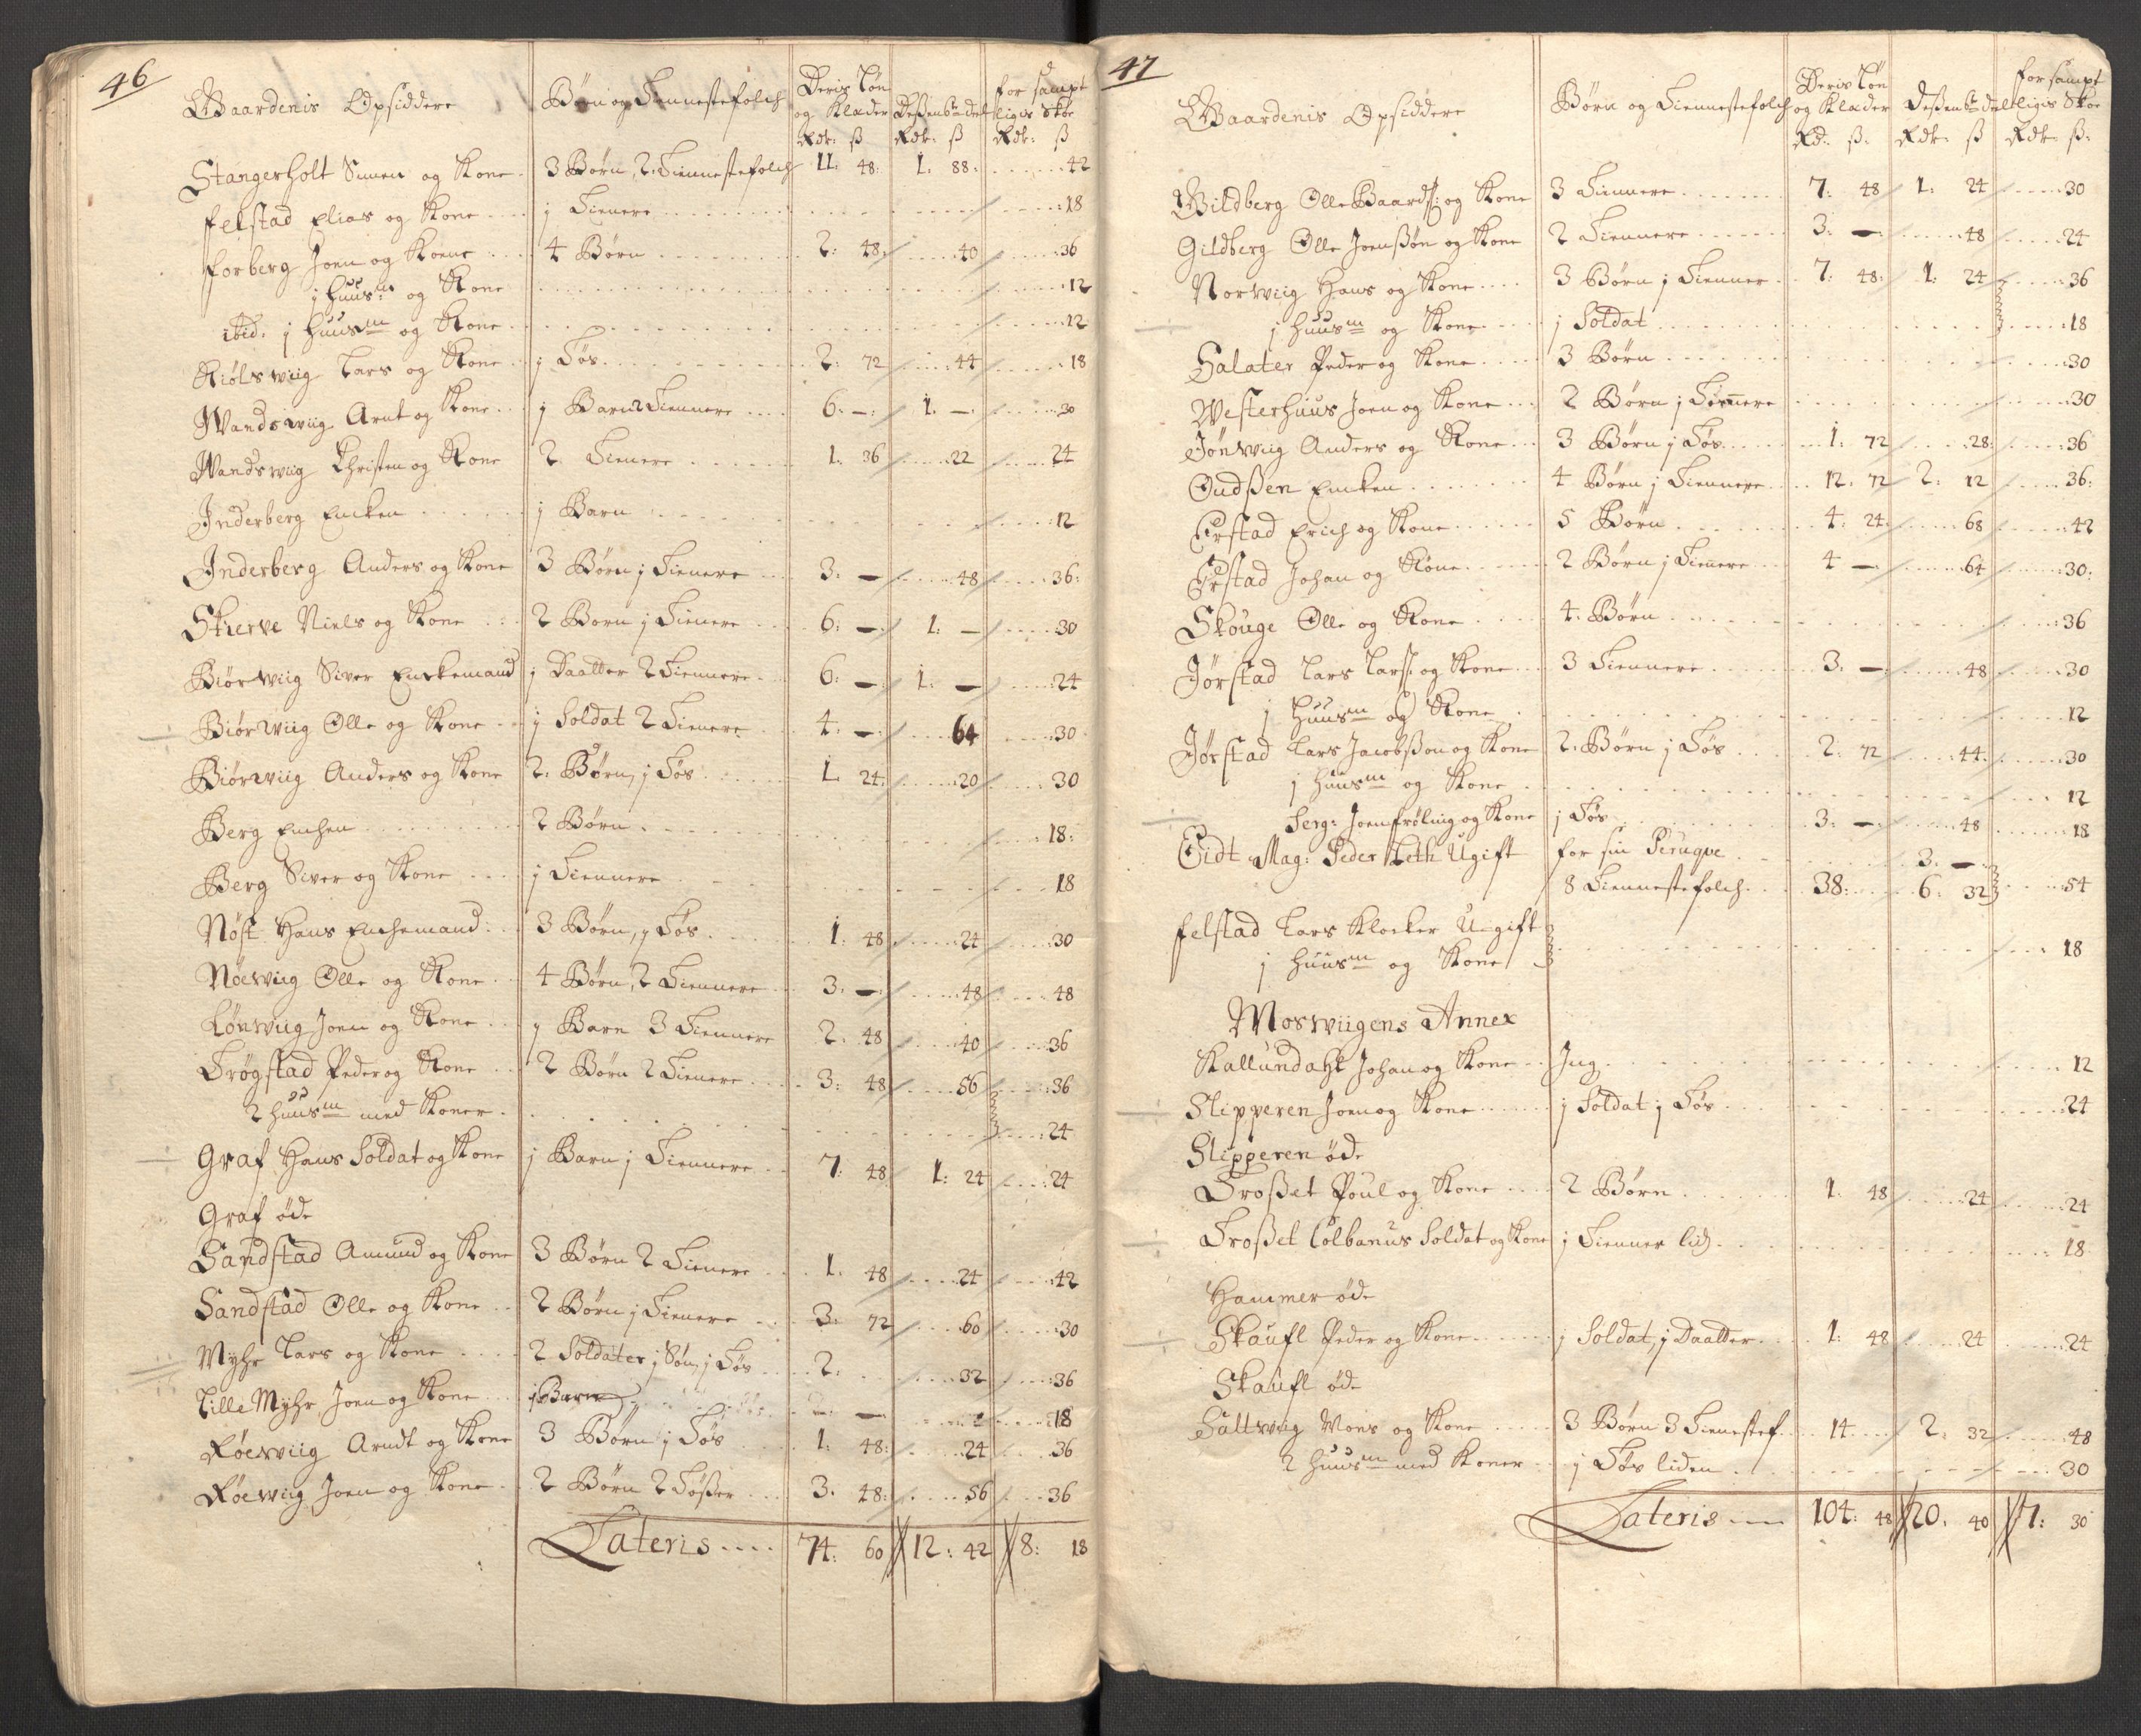 46
Gaardenis Opsiddere Børn og Tiennestefolch Deris Løn og Klæder Deßen 6te del for sampt ligis Skoe
Rdr: ß Rdr: ß Rdr: ß
Stangerholt Simen og Kone 3 Børn, 2 Tiennestefolch 11: 48: 1: 88: 42
Felstad Elias og Kone j Tienere 18
Forberg Joen og Koene 4 Børn 2: 48: 40 36
j huusm og Kone 12
ibid: j huusm og Kone 12
Kiølswiig Lars og Kone j Tøs 2: 72 44 18
Wandswiig Arnt og Kone j Barn 2 Tiennere 6: – 1: – 30
Wandswiig Christen og Kone 2 Tienere 1: 36 22 24
Inderberg Encken j Barn 12
Inderberg Anders og Kone 3 Børn j Tienere 3: – 48 36:
Stierve Niels og Kone 2 Børn j Tienere 6: – 1: – 30
Biørwiig Siver Enckemand j Daatter 2 Tiennere 6: – 1: – 24
Biørwiig Olle og Kone j Soldat 2 Tienere 4: – 64 30
Biørwiig Anders og Kone 2: Børn, j Tøs 1: 24: 20 30
Berg Enchen 2 Børn 18:
Berg Siver og Kone j Tiennere 18
Nøst Hans Enchemand 3 Børn, j Tøs 1: 48 24 30
Nøewiig Olle og Kone 4 Børn, 2 Tiennere 3: – 48 48
Lønwiig Joen og Kone j Barn 3 Tiennere 2: 48 40 36
Trøgstad Peder og Kone 2 Børn 2 Tienere 3: 48 56 36
2 huusm med Koner 24
Graf Hans Soldat og Kone j Barn j Tiennere 7: 48 1: 24 24
Graf øde
Sandstad Amund og Kone 3 Børn 2 Tienere 1: 48 24 42
Sandstad Olle og Kone 2 Børn j Tienere 3: 72 60 30
Myhr Lars og Kone 2 Soldater j Søn, j Tøs 2: 32 36
Lille Myhr Joen og Kone j Barn – – 18
Røewiig Arndt og Kone 3 Børn j Tøs 1: 48: 24 36
Røewiig Joen og Kone 2 Børn 2 Tøßer 3: 48: 56 36
Lateris 74: 60 12: 42 8: 18
47
Gaardenis Opsiddere Børn og Tiennestefolch Deris Løn og Klæder Deßen 6te del for sampt ligis Skoe
Rd: ß: Rdr: ß Rdr: ß:
Gildberg Olle Baards: og Kone 3 Tiennere 7: 48 1: 24 30
Gildberg Olle Joenßøn og Kone 2 Tiennere 3: – 48 24
Norwiig Hans og Kone 3 Børn j Tienner 7: 48: 1: 24 36
j huusm og Kone j Soldat 18
Salater Peder og Kone 3 Børn 30
Westerhuus Joen og Kone 2 Børn j Tiennere 30
Jønwiig Anders og Kone 3 Børn j Tøs 1: 72 28: 36
Oudßen Encken 4 Børn j Tiennere 12: 72 2: 12 36:
Erstad Erich og Kone 5 Børn 4: 24: 68 42
Erstad Johan og Kone 2 Børn j Tienere 4 – 64 30:
Skouge Olle og Kone 4: Børn 36
Jørstad Lars Larß: og Kone 3 Tiennere 3: – 48 30
j Huusm og Kone 12
Jørstad Lars Jacobßøn og Kone 2: Børn j Tøs 2: 72 44: 30
j huusm og Kone 12
Serg: Joen Frøling og Kone j Tøs 3: – 48 18
Eidt Mag: Peder Leth Ugift for sin Peruqve 3: –
8 Tiennestefolch 38: 6: 32 54
Felstad Lars Klocker Ugift
j huusm og Kone 18
Moswiigens Annex
Kallundahl Johan og Kone Ing 12
Slipperen Joen og Kone j Soldat j Tøs 24
Slipperen øde
Troßet Poul og Kone 2 Børn 1: 48 24 24
Troßet Colbanus Soldat og Kone j Tienner lid 18
Hammer øde
Skaufl Peder og Kone j Soldat, j Daatter 1: 48 24 24
Skaufl øde
Sultwiig Mons og Kone 3 Børn 3 Tienestef 14 2: 32 48
2 huusm med Koner j Tøs liden 30
Lateris 104: 48 20: 40 7: 30